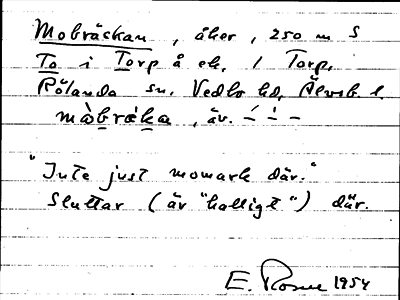 Mobräckan, åker, 250 m S
To i Torp å ek. 1 Torp,
Rölanda sn. Vedbo hd, Älvsb. l.
mòbræ̀ka, äv. –́ – –
"Inte just momark där."
Sluttar (är "halligt") där.
E. Rosne 1954